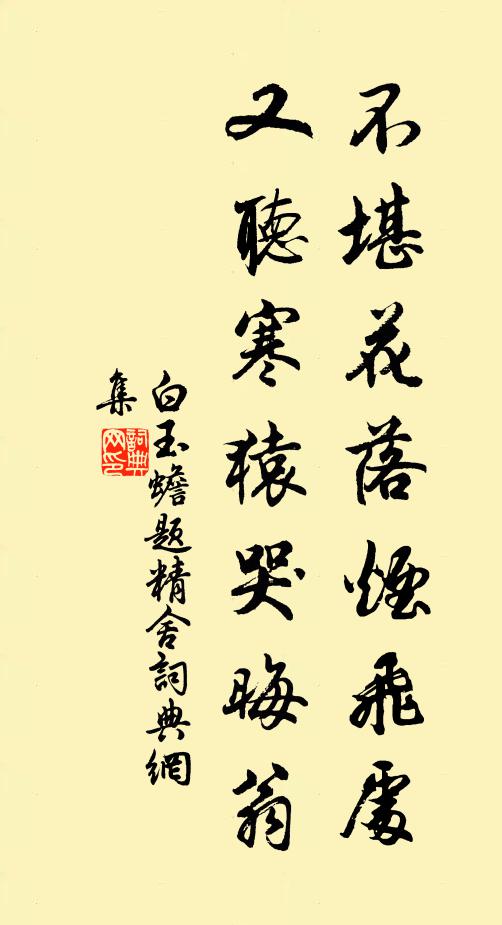 不堪花落煙飛處
又聽寒猿哭晦翁
白玉蟾題精舍詞典網
集
詞典网印